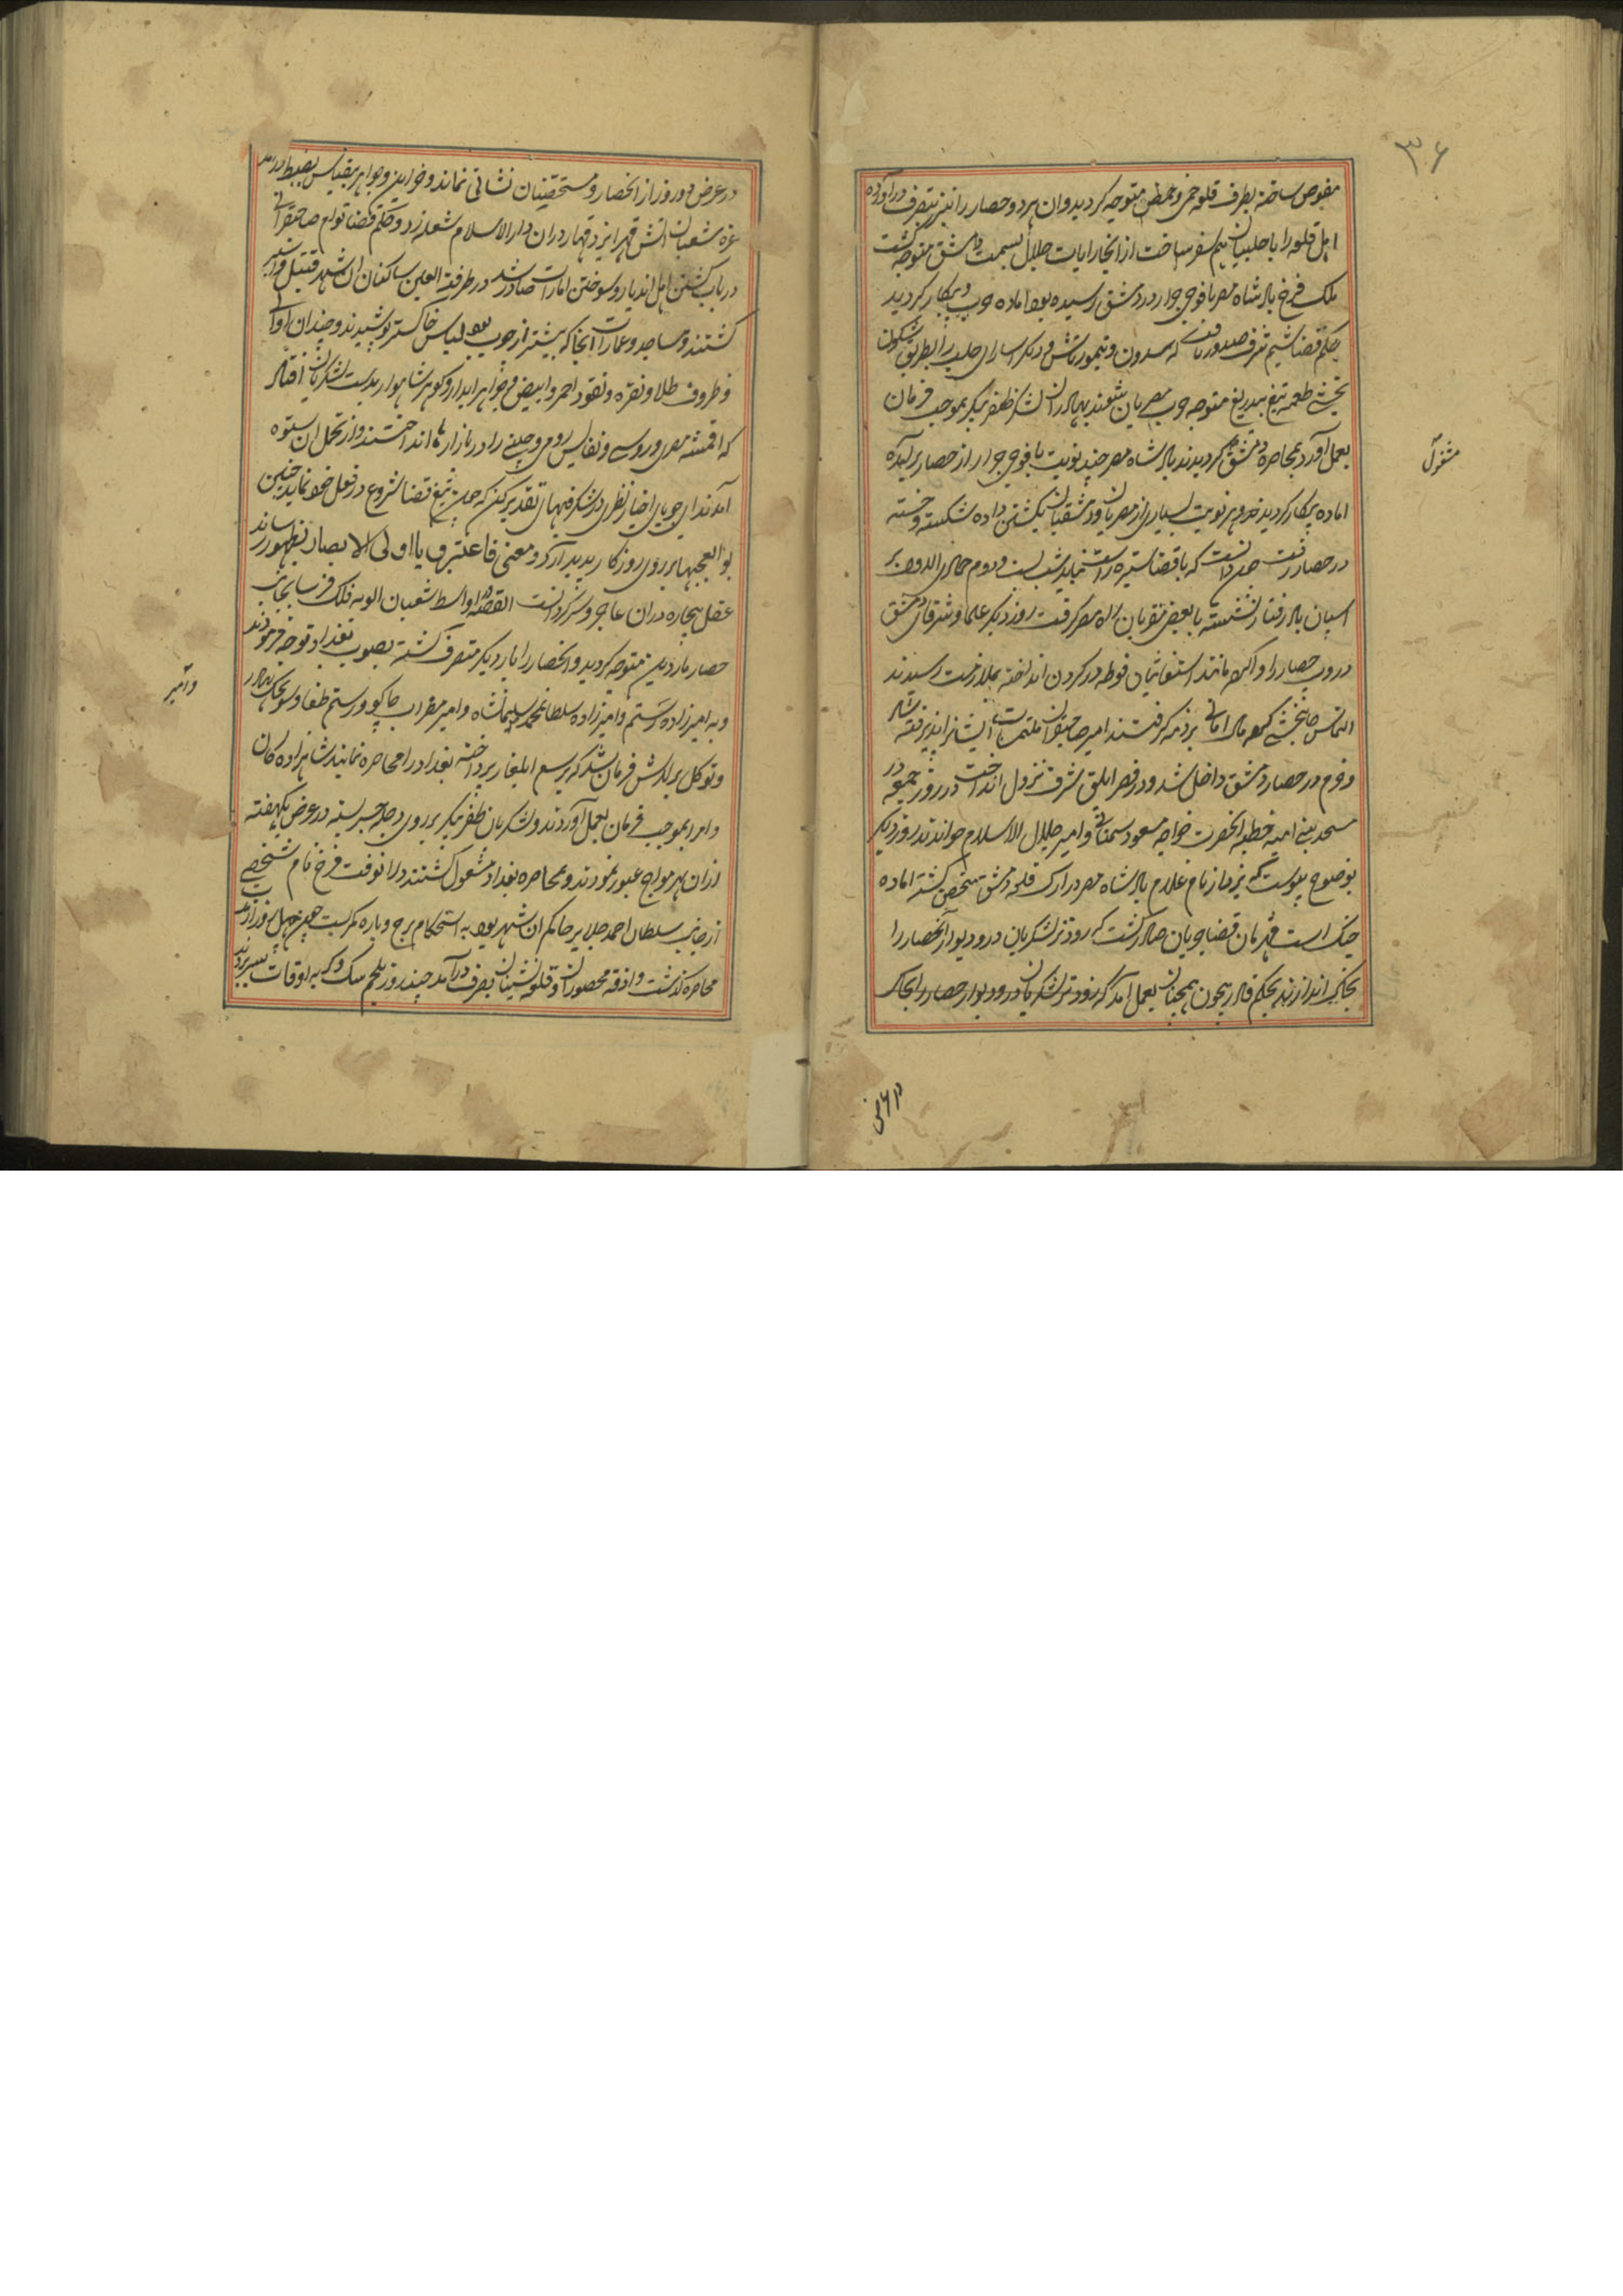 ۳۶
مفوض ساخته بطرف قلعه حمی و حمص متوجه کردید و ان هر دو حصار را نیز بتصرف دراورده
اهل قلعه را با حلبیان هم سفر ساخت از انجا رایات جلال بسمت دمشق متوجه کشت
ملک فرخ پادشاه مصر با فوجی جرار در دمشق رسیده بود اماده حرب و پیکار کردید
حکم قضا شیم شرف صدور یافت که سدون و تیمورتاش و دیکر اسارای حلب را بطریق شکون
تیغ بیدریغ متوجه حرب مصریان شوند بهادران لشکر ظفر پیکر بموجب فرمان
بعمل اورده بمحاصره دمشق کردیدند پادشاه مصر چند نوبت با فوجی جرار از حصار برامده
مشغول
اماده پیکار کردید و هر نوبت بسیاری از مصریان و دمشقیان بکشتن داده شکسته و خسته
در حصار رفت چون دانست که با قضا ستیزه راست نیاید شب بیست و دوم جمادی الاول بر
اسپان باد رفتار نشسته با بعضی مقربان راه مصر کرفت روز دیکر علما و شرفای دمشق
دروب حصار را وا کرده مانند استغاثیان فوطه در کردن انداخته بملازمت رسیدند
التماس جانبخشی کرده مال امانی بر ذمه کرفتند امیر صاحبقران ملتمسات ایشانرا پذیرفته شاد
و خرم در حصار دمشق داخل شد و در قصر ابلق شرف نزول انداخت در روز جمعه در
مسجد بنی امیه خطبه انحضرت خواجه مسعود سمنانی و امیر جلال الاسلام خواندند روز دیکر
بوضوح پیوست که یزدار نام غلام پادشاه مصر در ارک قلعه دمشق متحصن کشته اماده
جنک است فرمان قضا جریان صادر کشت که زودتر لشکریان در و دیوار انحصار را
بخاک اندازند بحکم قادر بیچون همچنان بعمل امد که زودتر لشکریان در و دیوار حصار را بخاک
در عرض
در عرض دو روز از انحصار و متحصنان نشانی نماند و خزاین و جواهر بیقیاس بضبط درامد
غره شعبان اتش قهر ایزد قهار دران دارالاسلام شعله زد و حکم قضا توام صاحبقرانی
در باب کشتن اهل اندیار و سوختن امارات صادر شد در طرفة العین ساکنان ان شهر قتیل و اسیر
کشتند و مساجد و عمارات انجا که بیشتر از چوب بود لباس خاکستر پوشیدند و چندان اوانی
و ظروف طلا و نقره و نقود احمر و ابیض و جواهر ابدار و کوهر شاهوار بدست لشکریان افتاد
که اقمشه مصری و روسی و نفایس رومی و چینی را در بازارها انداختند و از تحمل ان ستوه
امدند ای جویای اخبار نظری در شکرفیهای تقدیر کن که چون تیغ قضا شروع در فعل خود نماید چنین
بوالعجبیها بر روی روزکار پدیدار کرد و معنی فاعتبروا یا اولی الابصار بظهور رساند
عقل بیچاره دران عاجز و سرکردانست القصه اواسط شعبان الویه فلک فرسا بجانب
حصار ماردین متوجه کردید و انحصار را بار دیکر متصرف کشته بصوب بغداد توجه فرمودند
و به امیرزاده رستم و امیرزاده سلطانمحمد و سلیمانشاه و امیر مضراب جاکو و رستم طغا و سونجک بهادر
وامیر
و توکل برلاس فرمان شد که بر سبیل ایلغار پرداخته بغداد را محاصره نمایند شاهزاده کان
و امرا بموجب فرمان بعمل آوردند و لشکریان ظفر پیکر بر روی دجله جسر بسته در عرض یکهفته
ازان بحر مواج عبور نمودند و بمحاصره بغداد مشغول کشتند درانوقت فرخ نام شخصی
از جانب سلطان احمد جلایر حاکم ان شهر بود به استحکام برج و باره کمر بست چون چهل روز از مدت
محاصره کذشت و اذوقه محصوران و قلعه نشینان بصرف درآمد چند روز بلحم سک و کربه اوقات بسر بردند